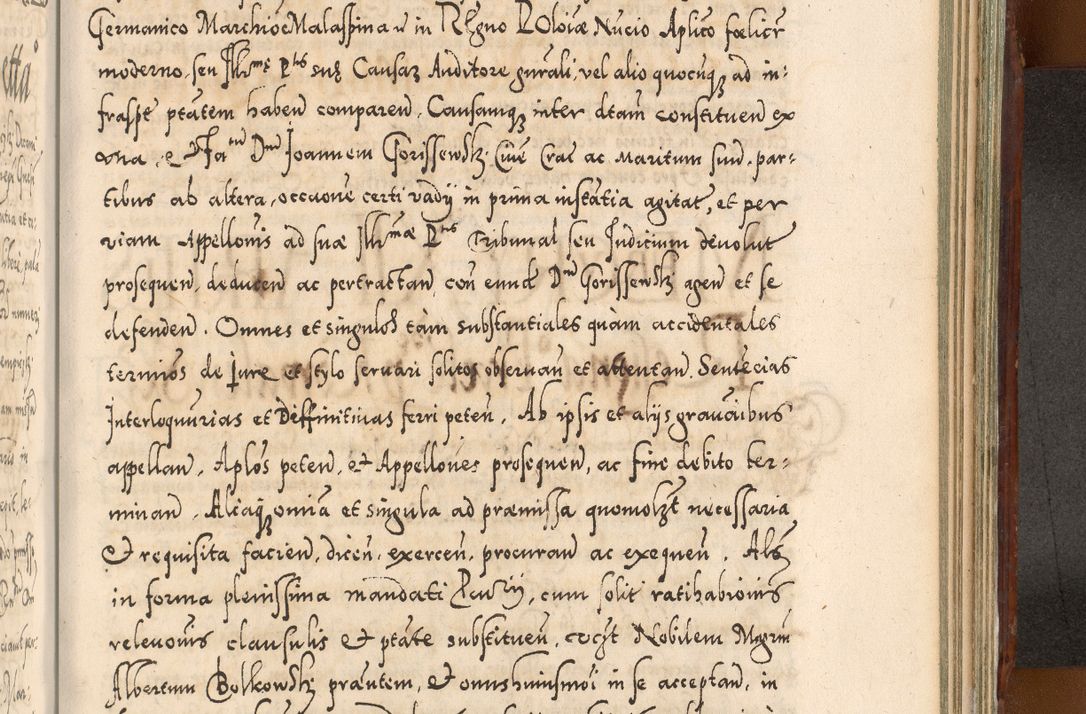 Germanico Marchioe Malaspina v in Regno Poloiæ Nucio Aplico fœlicr
moderno, seu Illrme Ptis suæ Causaʒ Auditore gnrali, vel alio quocuqʒ ad in:
frasptē ptātem haben comparen, Causamqʒ inter dtam constituen ex
vna, & Fatm Dnū Joannem Gorissewskʒ Ciuē Crac ac Maritum suū, par:
tibus ab altera, occaone certi vadÿ in prima instātia agitat, et per
viam Appellonis ad suæ Illmæ Ptis Tribunal seu Judicium deuolut
prosequen, deducen ac pertractan, con eund Dno Gorissewskʒ agen et se
defenden. Omnes et singulos tam substantiales quàm accidentales
terminos de Jure et stylo seruari solitos obseruan et attentan. Sentēcias
Interloqutorias et Diffinitiuas ferri peten, Ab ipsis et alÿs grauāibus
appellan, Aplos peten, & Appellones prosequen, ac fine debito ter:
minan, Aliaqʒ omnia et singula ad præmissa quomolʒt necessaria
& requisita facien, dicen, exercen, procuran ac exequen. Alʒ
in forma plenissima mandati, cum solit ratihabionis
releuonis clausulis & ptāte substituen, Nobilem Magrm
Albertum Bolkowskʒ præntem, & onus huiusmoi in se acceptan, in